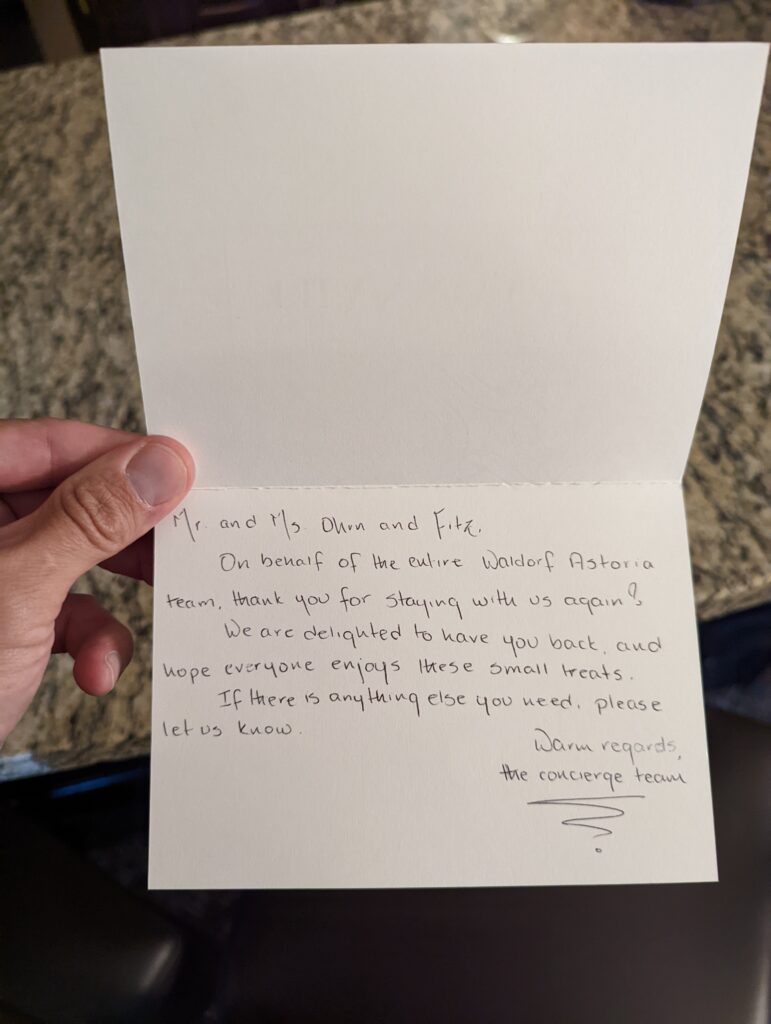 Mr. and Ms. Ohrn and Fitz,
On behalf of the entire Waldorf Astoria
team, thank you for staying with us again!
We are delighted to have you back, and
hope everyone enjoys these small treats.
If there is anything else you need, please
let us know.
Warm regards,
the concierge team